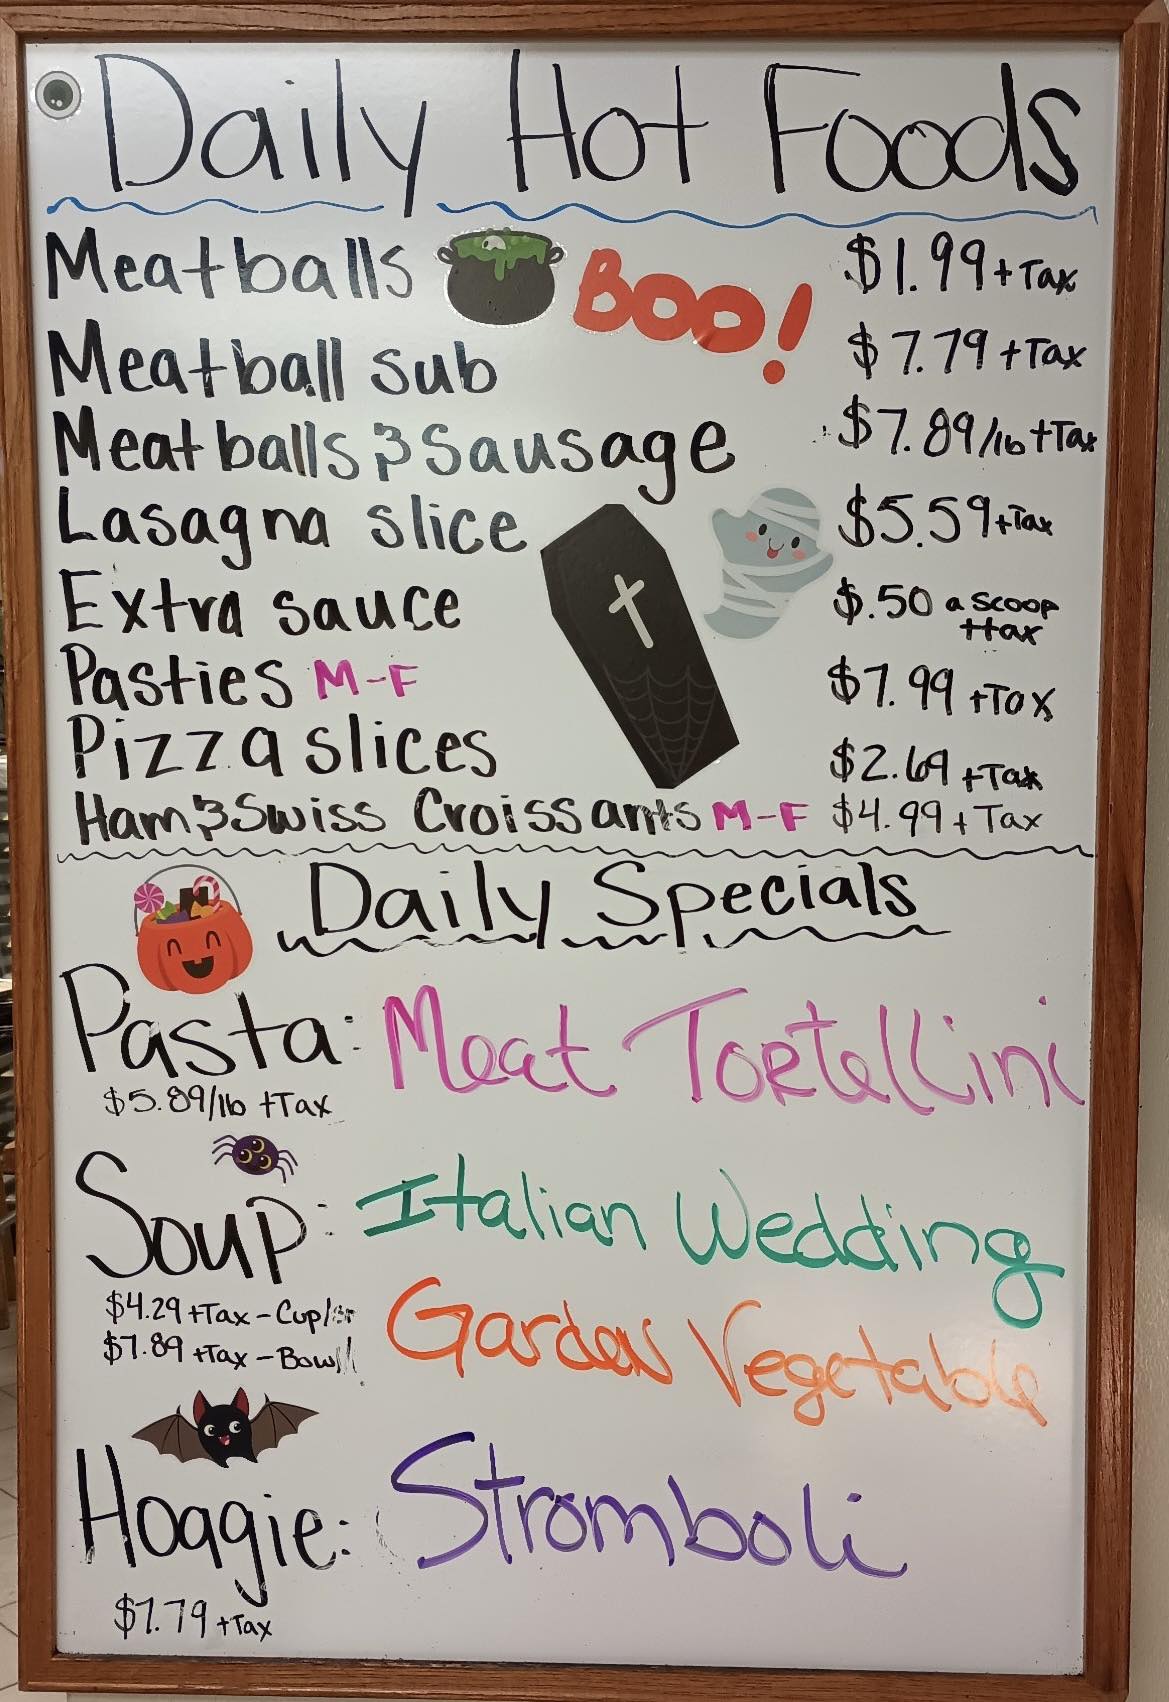 Daily Hot Foods
Meatballs BOO! $1.99 + Tax
Meatball sub $7.79 + Tax
Meatballs & Sausage $7.89/lb + Tax
Lasagna slice $5.59 + Tax
Extra sauce $.50 a scoop
+tax
Pasties M-F $7.99 + Tax
Pizza slices $2.69 + Tax
Ham & Swiss Croissants M-F $4.99 + Tax
Daily Specials
Pasta: Meat Tortellini
$5.89/lb + Tax
Soup: Italian Wedding
$4.29 + Tax - Cup
Garden Vegetable
$7.89 + Tax - Bowl
Hoagie: Stromboli
$7.79 + Tax